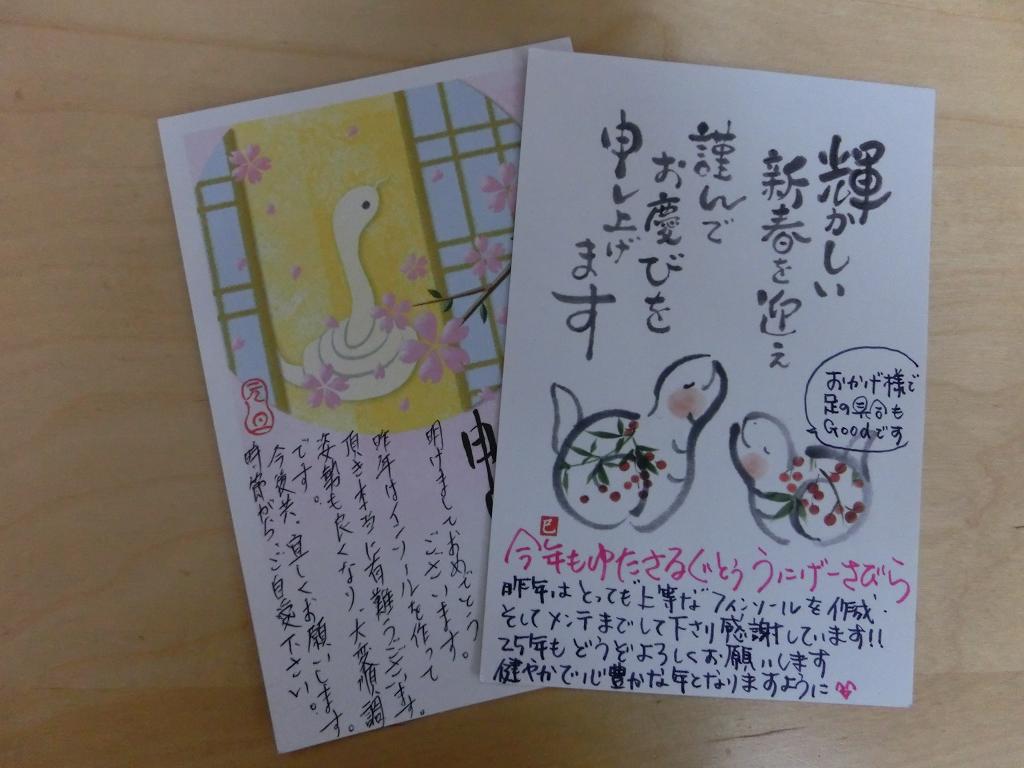 輝かしい
新春を迎え
謹んで
お慶びを
申し上げ
ます
おかげ様で
足の具合も
Goodです
巳
今年もゆたさるぐとぅうにげーさびら
昨年はとっても上等なインソールを作成
そしてメンテまでして下さり感謝しています!!
25年もどうぞよろしくお願いします
健やかで心豊かな年となりますように
元旦
明けましておめでとう
ございます。
昨年はインソールを作って
頂きまして有難うございます。
姿勢も良くなり、大変順調
です。
今後共、宜しくお願いします。
時節がら、ご自愛下さい。